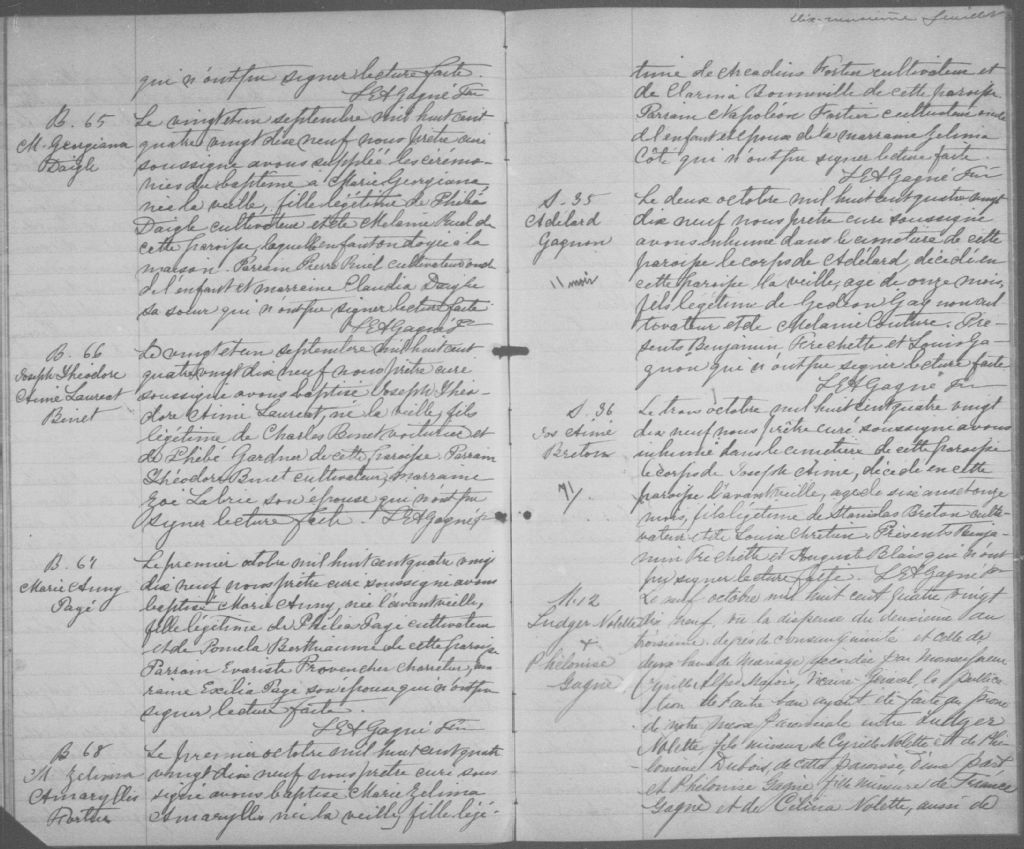 qui n'ont pu signer lecture faite.
L E A Gagné Ptre
B. 65
M. Georgiana
Daigle
Le vingt et un septembre mil huit cent
quatre vingt dix neuf nous prêtre curé
soussigné avons suppléé les cérémo-
nies du baptême à Marie Georgiana
née la veille, fille légitime de Philias
Daigle cultivateur et de Mélanie Ruel de
cette paroisse, laquelle enfant ondoyée à la
maison. Parrain Pierre Ruel cultivateur oncle
de l'enfant et marraine Claudia Daigle
sa soeur qui n'ont pu signer lecture faite
L E A Gagné Ptre
B. 66
Joseph Théodore
Aimé Laureat
Binet
Le vingt et un septembre mil huit cent
quatre vingt dix neuf nous prêtre curé
soussigné avons baptisé Joseph Théo-
dore Aimé Laureat, né la veille, fils
légitime de Charles Binet voiturier et
de Phébé Gardner de cette paroisse. Parrain
Théodore Binet cultivateur, marraine
Zoé Labrie son épouse qui n'ont pu
signer lecture faite. L E A Gagné Ptre
B. 67
Marie Anny
Pagé
Le premier octobre mil huit cent quatre vingt
dix neuf nous prêtre curé soussigné avons
baptisé Marie Anny, née l'avant veille,
fille légitime de Philias Pagé cultivateur
et de Pomela Berthiaume de cette paroisse
Parrain Evariste Provencher charretier, mar
raine Exilia Pagé son épouse qui n'ont pu
signer lecture faite.
L E A Gagné Ptre
B 68
M. Zelima
Amaryllis
Fortier
Le premier octobre mil huit cent quatre
vingt dix neuf nous prêtre curé sous
signé avons baptisé Marie Zelima
Amaryllis née la veille, fille légi-
dix-neuvième feuillet
time de Arcadius Fortier cultivateur et
de Clarina Bonneville de cette paroisse.
Parrain Napoléon Fortier cultivateur oncle
de l'enfant et époux de la marraine Zelima
Côté qui n'ont pu signer lecture faite.
L E A Gagné Ptre
S. 35
Adélard
Gagnon
11 mois
Le deux octobre mil huit cent quatre vingt
dix neuf nous prêtre curé soussigné
avons inhumé dans le cimetière de cette
paroisse le corps de Adélard, décédé en
cette paroisse la veille, agé de onze mois,
fils légitime de Gédéon Gagnon cul
tivateur et de Melanie Couture. Pré-
sents Benjamin Frechette et Louis Ga-
gnon qui n'ont pu signer lecture faite
L E A Gagné Ptre
S. 36
Jos Aimé
Breton
7/
Le trois octobre mil huit cent quatre vingt
dix neuf nous prêtre curé soussigné avons
inhumé dans le cimetière de cette paroisse
le corps de Joseph Aimé, décédé en cette
paroisse l'avant veille, agé de six ans et onze
mois, fils légitime de Stanislas Breton culti-
vateur et de Louise Chretien. Présents Benja-
min Frechette et August Blais qui n'ont
pu signer lecture faite. L E A Gagné Ptre
M-12
Ludger Nolette
+
Phélonise
Gagné
Le neuf octobre mil huit cent quatre vingt
dix neuf, vu la dispense du deuxième au
troisième degrés de consanguinité et celle de
deux bans de mariage accordée par Monseigneur
Cyrille Alfred Marois, Vicaire Général, la publica-
tion de l'autre ban ayant été faite au prône
de notre messe paroissiale entre Ludger
Nolette, fils mineur de Cyrille Nolette et de Phi-
lomène Dubois, de cette paroisse, d'une part
et Phélonise Gagné fille mineure de
Gagné et de Célina Nolette, aussi de